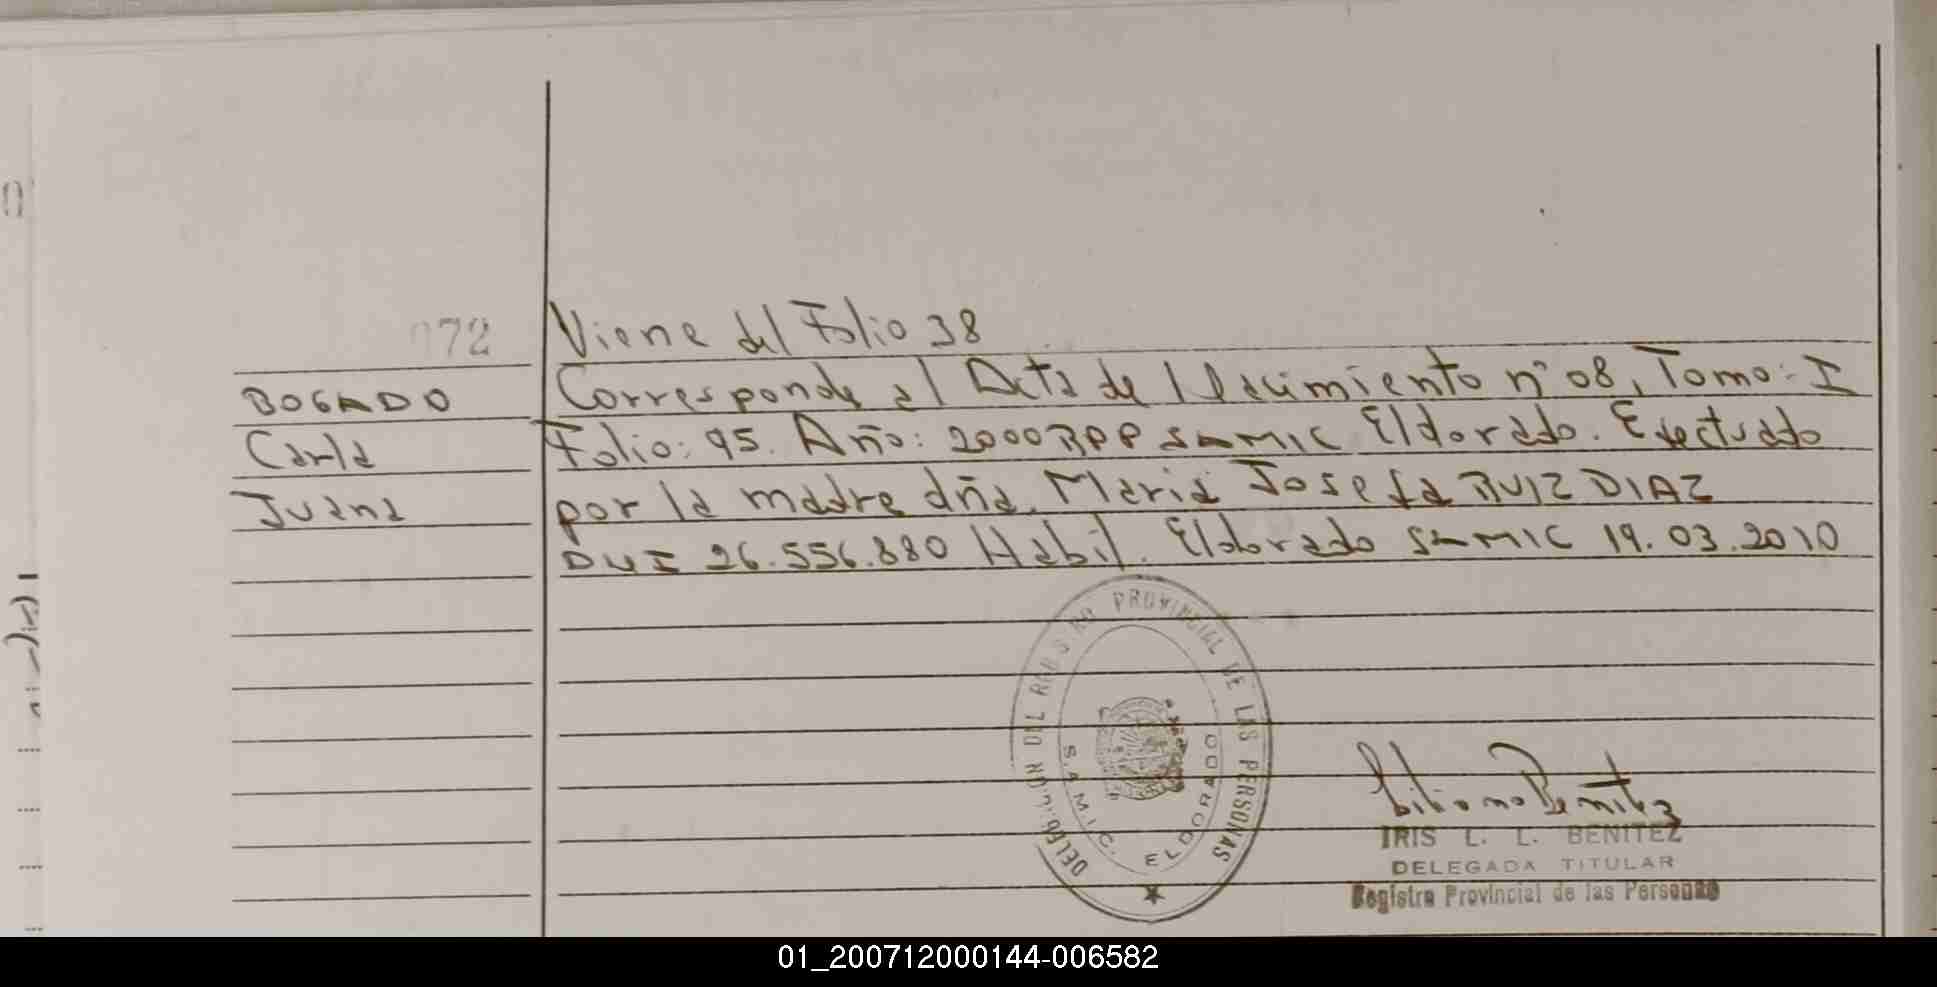 072
BOGADO
Carla
Juana
Viene del Folio 38
Corresponde al Acta de Nacimiento n° 08, Tomo: I
Folio: 95. Año: 2000 RPP SAMIC Eldorado. Efectuado
por la madre dña. Maria Josefa RUIZ DIAZ
DNI 26.556.880 Habil. Eldorado SAMIC 19.03.2010
DELEGACION DEL REGISTRO PROVINCIAL DE LAS PERSONAS
S.A.M.I.C. ELDORADO
IRIS L. L. BENITEZ
DELEGADA TITULAR
Registro Provincial de las Personas
01_200712000144-006582